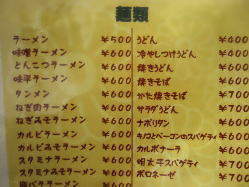 麺類
ラーメン ¥500
味噌ラーメン ¥600
とんこつラーメン ¥600
味平ラーメン ¥600
タンメン ¥600
ねぎ肉ラーメン ¥600
ねぎみそラーメン ¥600
カルビラーメン ¥600
カルビみそラーメン ¥600
スタミナラーメン ¥600
スタミナみそラーメン ¥600
うどん ¥400
冷やしつけうどん ¥400
焼きうどん ¥600
焼きそば ¥600
かた焼きそば ¥700
サラダうどん ¥700
ナポリタン ¥600
キノコとベーコンのスパゲティ ¥600
カルボナーラ ¥600
明太子スパゲティ ¥700
ボロネーゼ ¥700